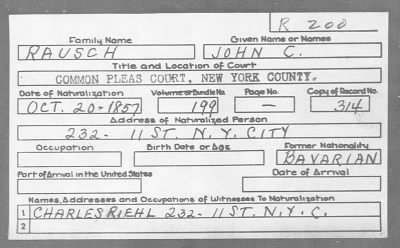 R 200
Family Name Given Name or Names
RAUSCH JOHN C.
Title and Location of Court
COMMON PLEAS COURT, NEW YORK COUNTY.
Date of Naturalization Volume or Bundle No. Page No. Copy of Record No.
OCT. 20-1857 199 — 314
Address of Naturalized Person
232- 11 ST. N.Y. CITY
Occupation Birth Date or Age Former Nationality
BAVARIAN
Port of Arrival in the United States Date of Arrival
Names, Addresses and Occupations of Witnesses To Naturalization
1 CHARLES RIEHL 232- 11 ST. N.Y.C.
2